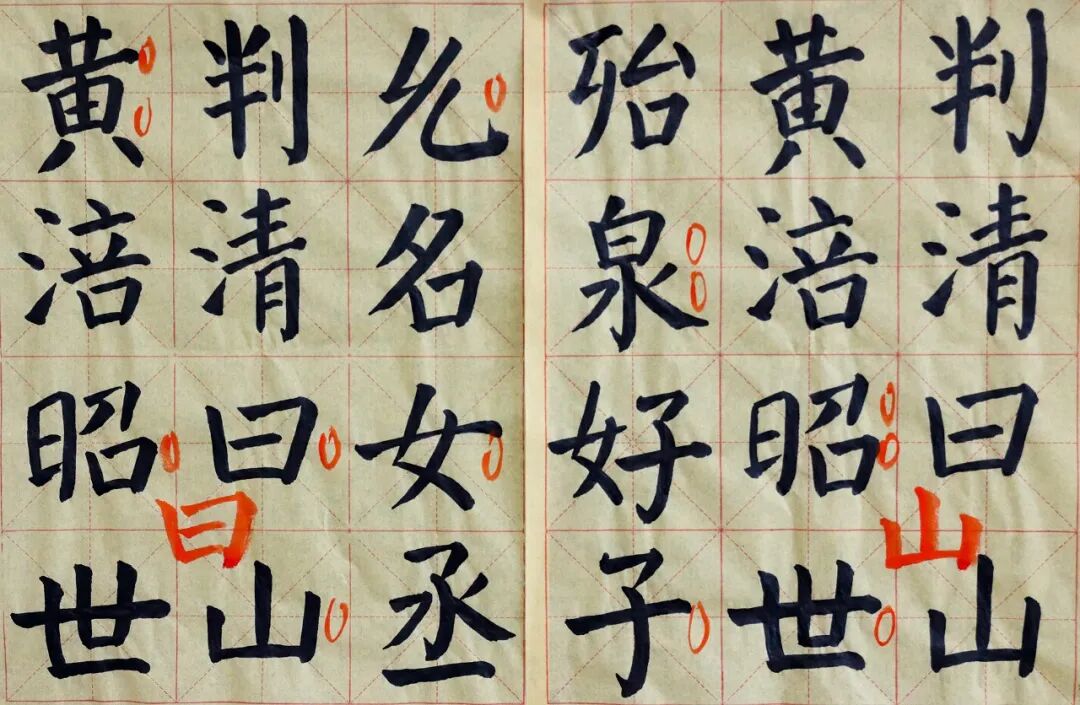 判清曰山
黄涪昭世
殆泉好子
山
名女丞
判清曰山
黄涪昭世
曰